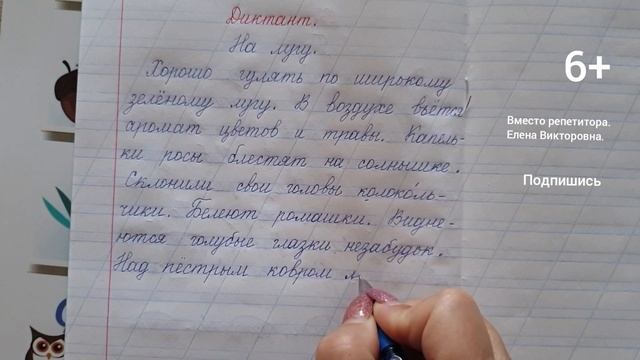 Диктант.
На лугу.
Хорошо гулять по широкому
зелёному лугу. В воздухе вьётся
аромат цветов и травы. Капель-
ки росы блестят на солнышке.
Склонили свои головы колоко́ль-
чики. Белеют ромашки. Видне-
ются голубые глазки незабудок.
Над пёстрым ковром
6+
Вместо репетитора.
Елена Викторовна.
Подпишись